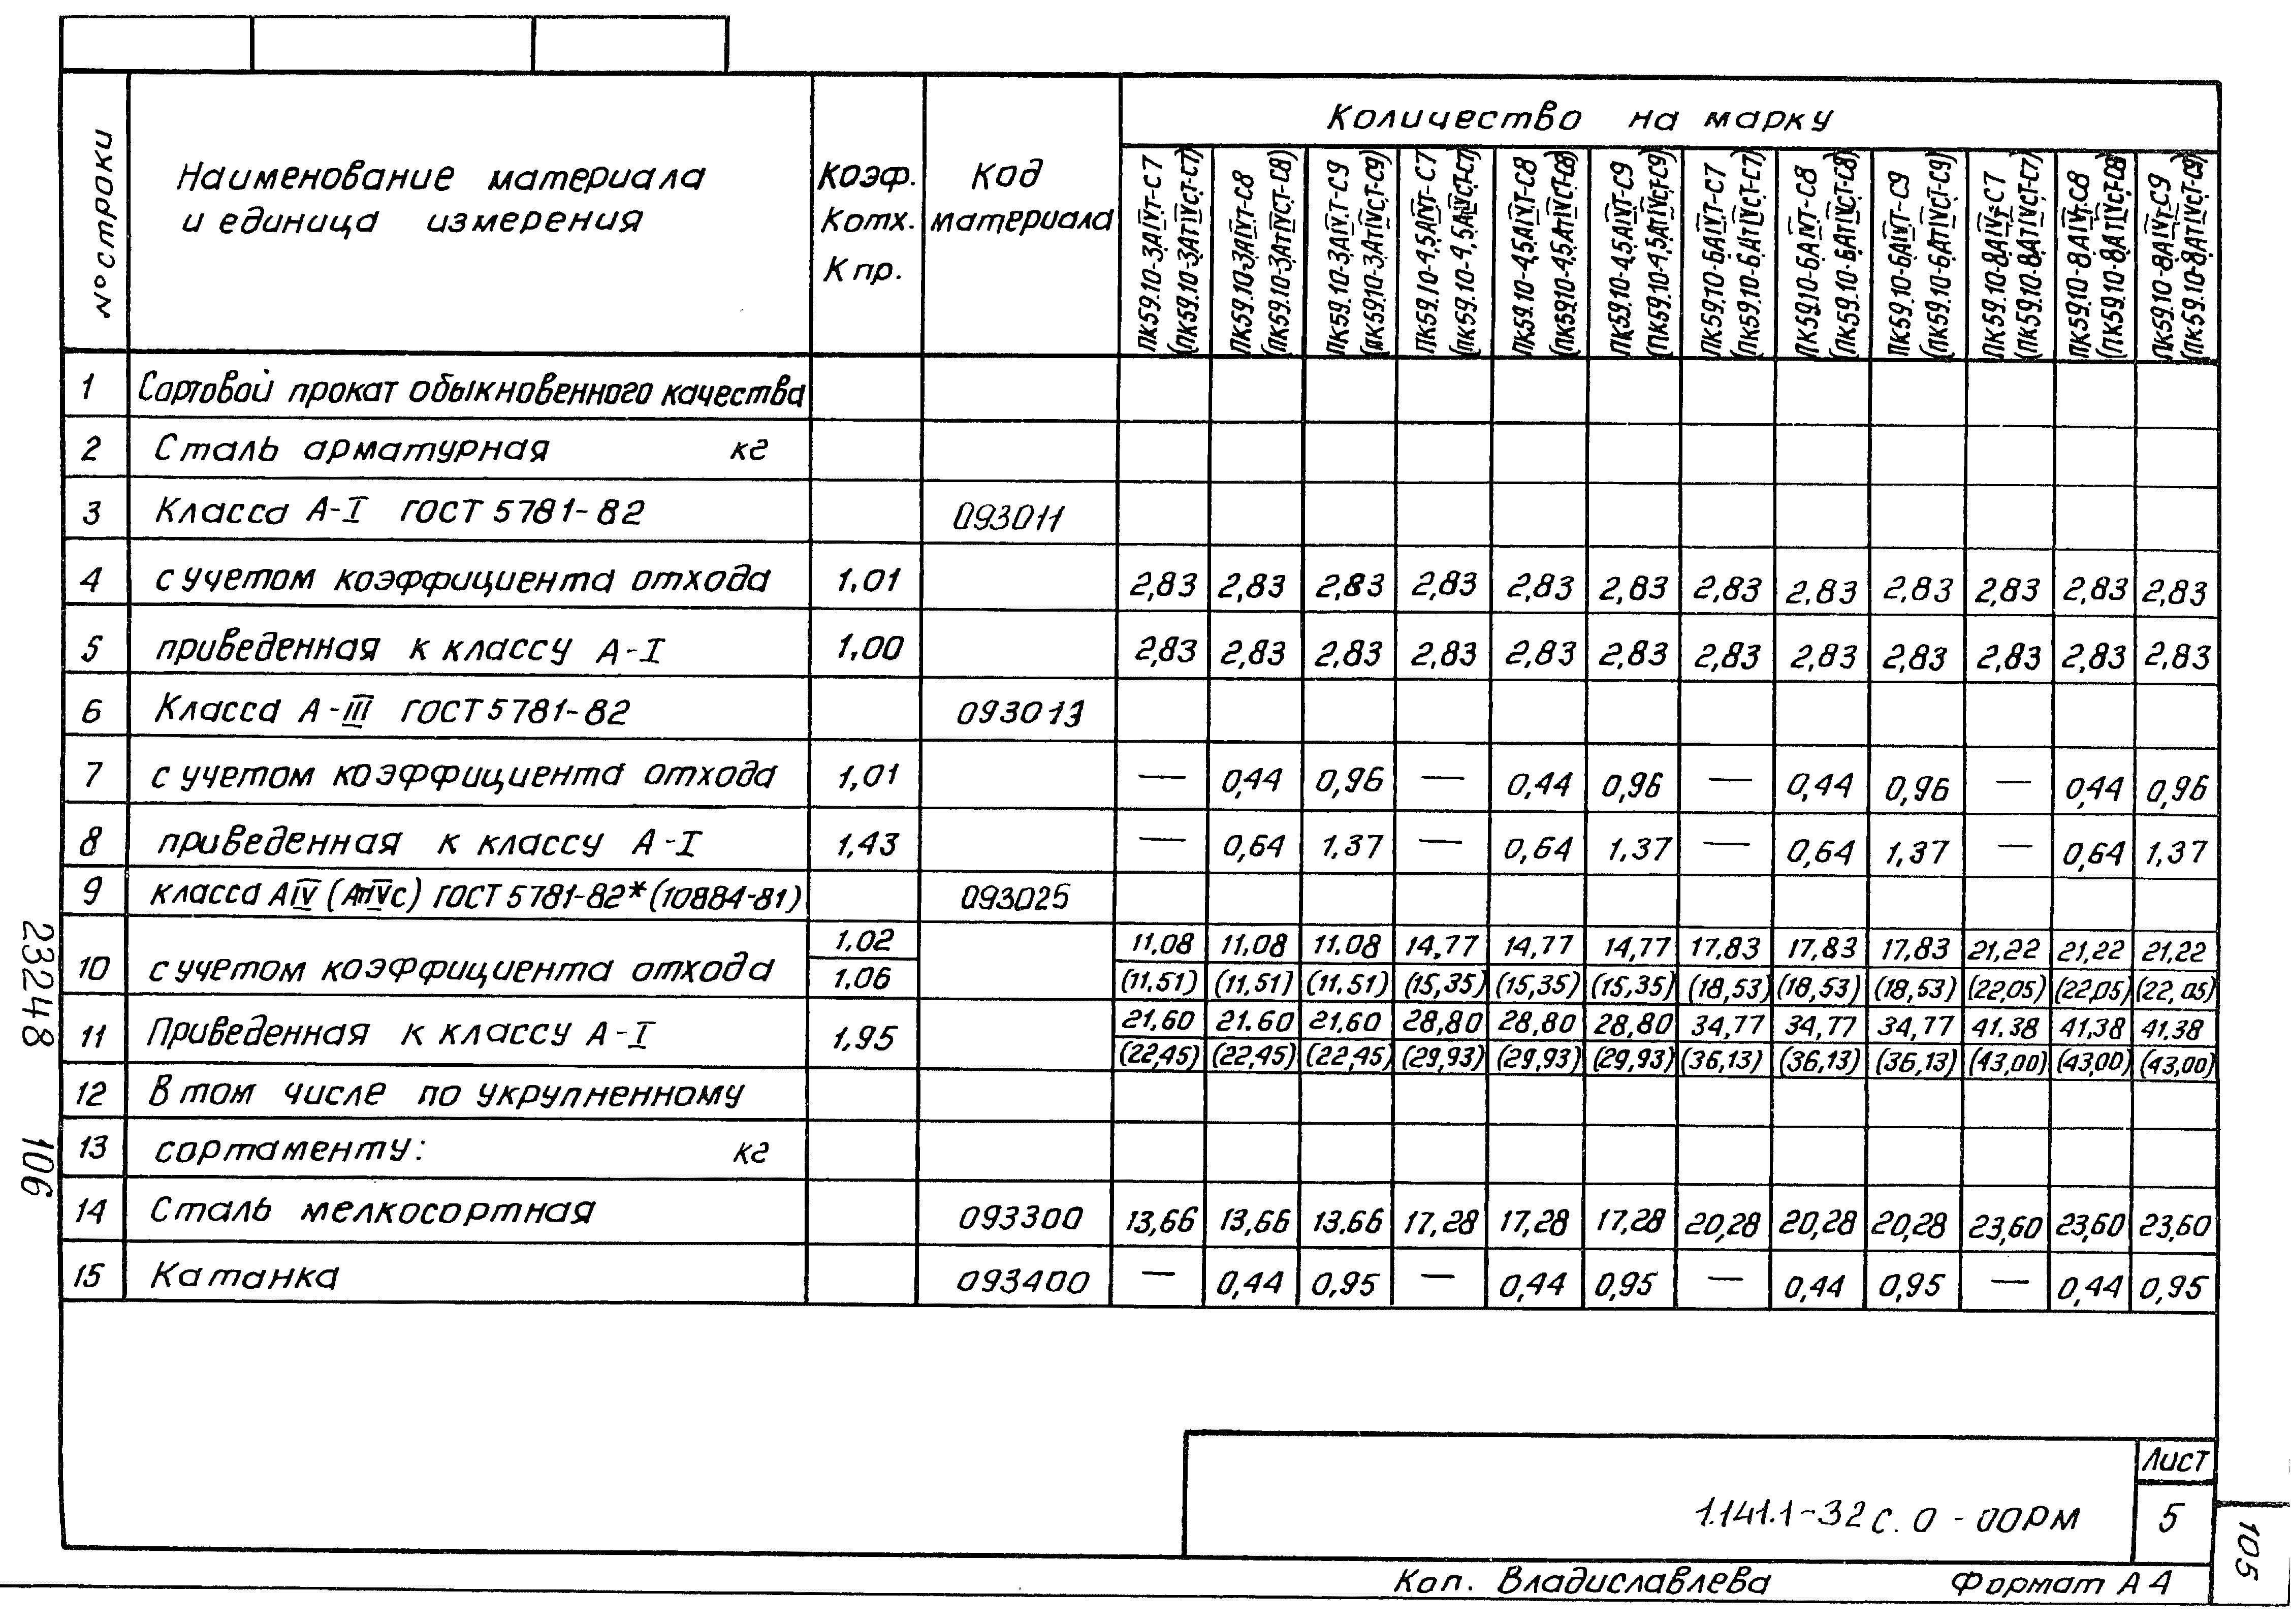 Количество на марку
№ строки
Наименование материала
и единица измерения
Коэф.
Котх.
К пр.
Код
материала
ПК59.10-3АIVТ-С7
(ПК59.10-3АТIVСТ-С7)
ПК59.10-3АIVТ-С8
(ПК59.10-3АТIVСТ-С8)
ПК59.10-3АIVТ-С9
(ПК59.10-3АТIVСТ-С9)
ПК59.10-4,5АIVТ-С7
(ПК59.10-4,5АIVСТ-С7)
ПК59.10-4,5АIVТ-С8
(ПК59.10-4,5АТIVСТ-С8)
ПК59.10-4,5АIVТ-С9
(ПК59.10-4,5АТIVСТ-С9)
ПК59.10-6АIVТ-С7
(ПК59.10-6АТIVСТ-С7)
ПК59.10-6АIVТ-С8
(ПК59.10-6АТIVСТ-С8)
ПК59.10-6АIVТ-С9
(ПК59.10-6АТIVСТ-С9)
ПК59.10-8АIVТ-С7
(ПК59.10-8АТIVСТ-С7)
ПК59.10-8АIVТ-С8
(ПК59.10-8АТIVСТ-С8)
ПК59.10-8АIVТ-С9
(ПК59.10-8АТIVСТ-С9)
1 Сортовой прокат обыкновенного качества
2 Сталь арматурная кг
3 Класса А-I ГОСТ 5781-82 093011
4 с учетом коэффициента отхода 1,01 2,83 2,83 2,83 2,83 2,83 2,83 2,83 2,83 2,83 2,83 2,83 2,83
5 приведенная к классу А-I 1,00 2,83 2,83 2,83 2,83 2,83 2,83 2,83 2,83 2,83 2,83 2,83 2,83
6 Класса А-III ГОСТ 5781-82 093013
7 с учетом коэффициента отхода 1,01 — 0,44 0,96 — 0,44 0,96 — 0,44 0,96 — 0,44 0,96
8 приведенная к классу А-I 1,43 — 0,64 1,37 — 0,64 1,37 — 0,64 1,37 — 0,64 1,37
9 класса АIV (АтIVс) ГОСТ 5781-82* (10884-81) 093025
10 с учетом коэффициента отхода 1,02 11,08 11,08 11.08 14,77 14,77 14,77 17,83 17,83 17,83 21,22 21,22 21,22
1.06 (11.51) (11,51) (11.51) (15,35) (15,35) (15,35) (18,53) (18,53) (18,53) (22,05) (22,05) (22,05)
11 Приведенная к классу А-I 1,95 21,60 21.60 21,60 28,80 28,80 28,80 34,77 34,77 34,77 41.38 41,38 41.38
(22,45) (22,45) (22,45) (29,93) (29,93) (29,93) (36,13) (36,13) (36,13) (43,00) (43,00) (43,00)
12 В том числе по укрупненному
13 сортаменту: кг
14 Сталь мелкосортная 093300 13,66 13,66 13.66 17,28 17,28 17,28 20,28 20,28 20,28 23,60 23,60 23,60
15 Катанка 093400 — 0,44 0,95 — 0,44 0,95 — 0,44 0,95 — 0,44 0,95
23248 106
1.141.1-32с.0-00РМ
Лист
5
105
Коп. Владиславлева Формат А4